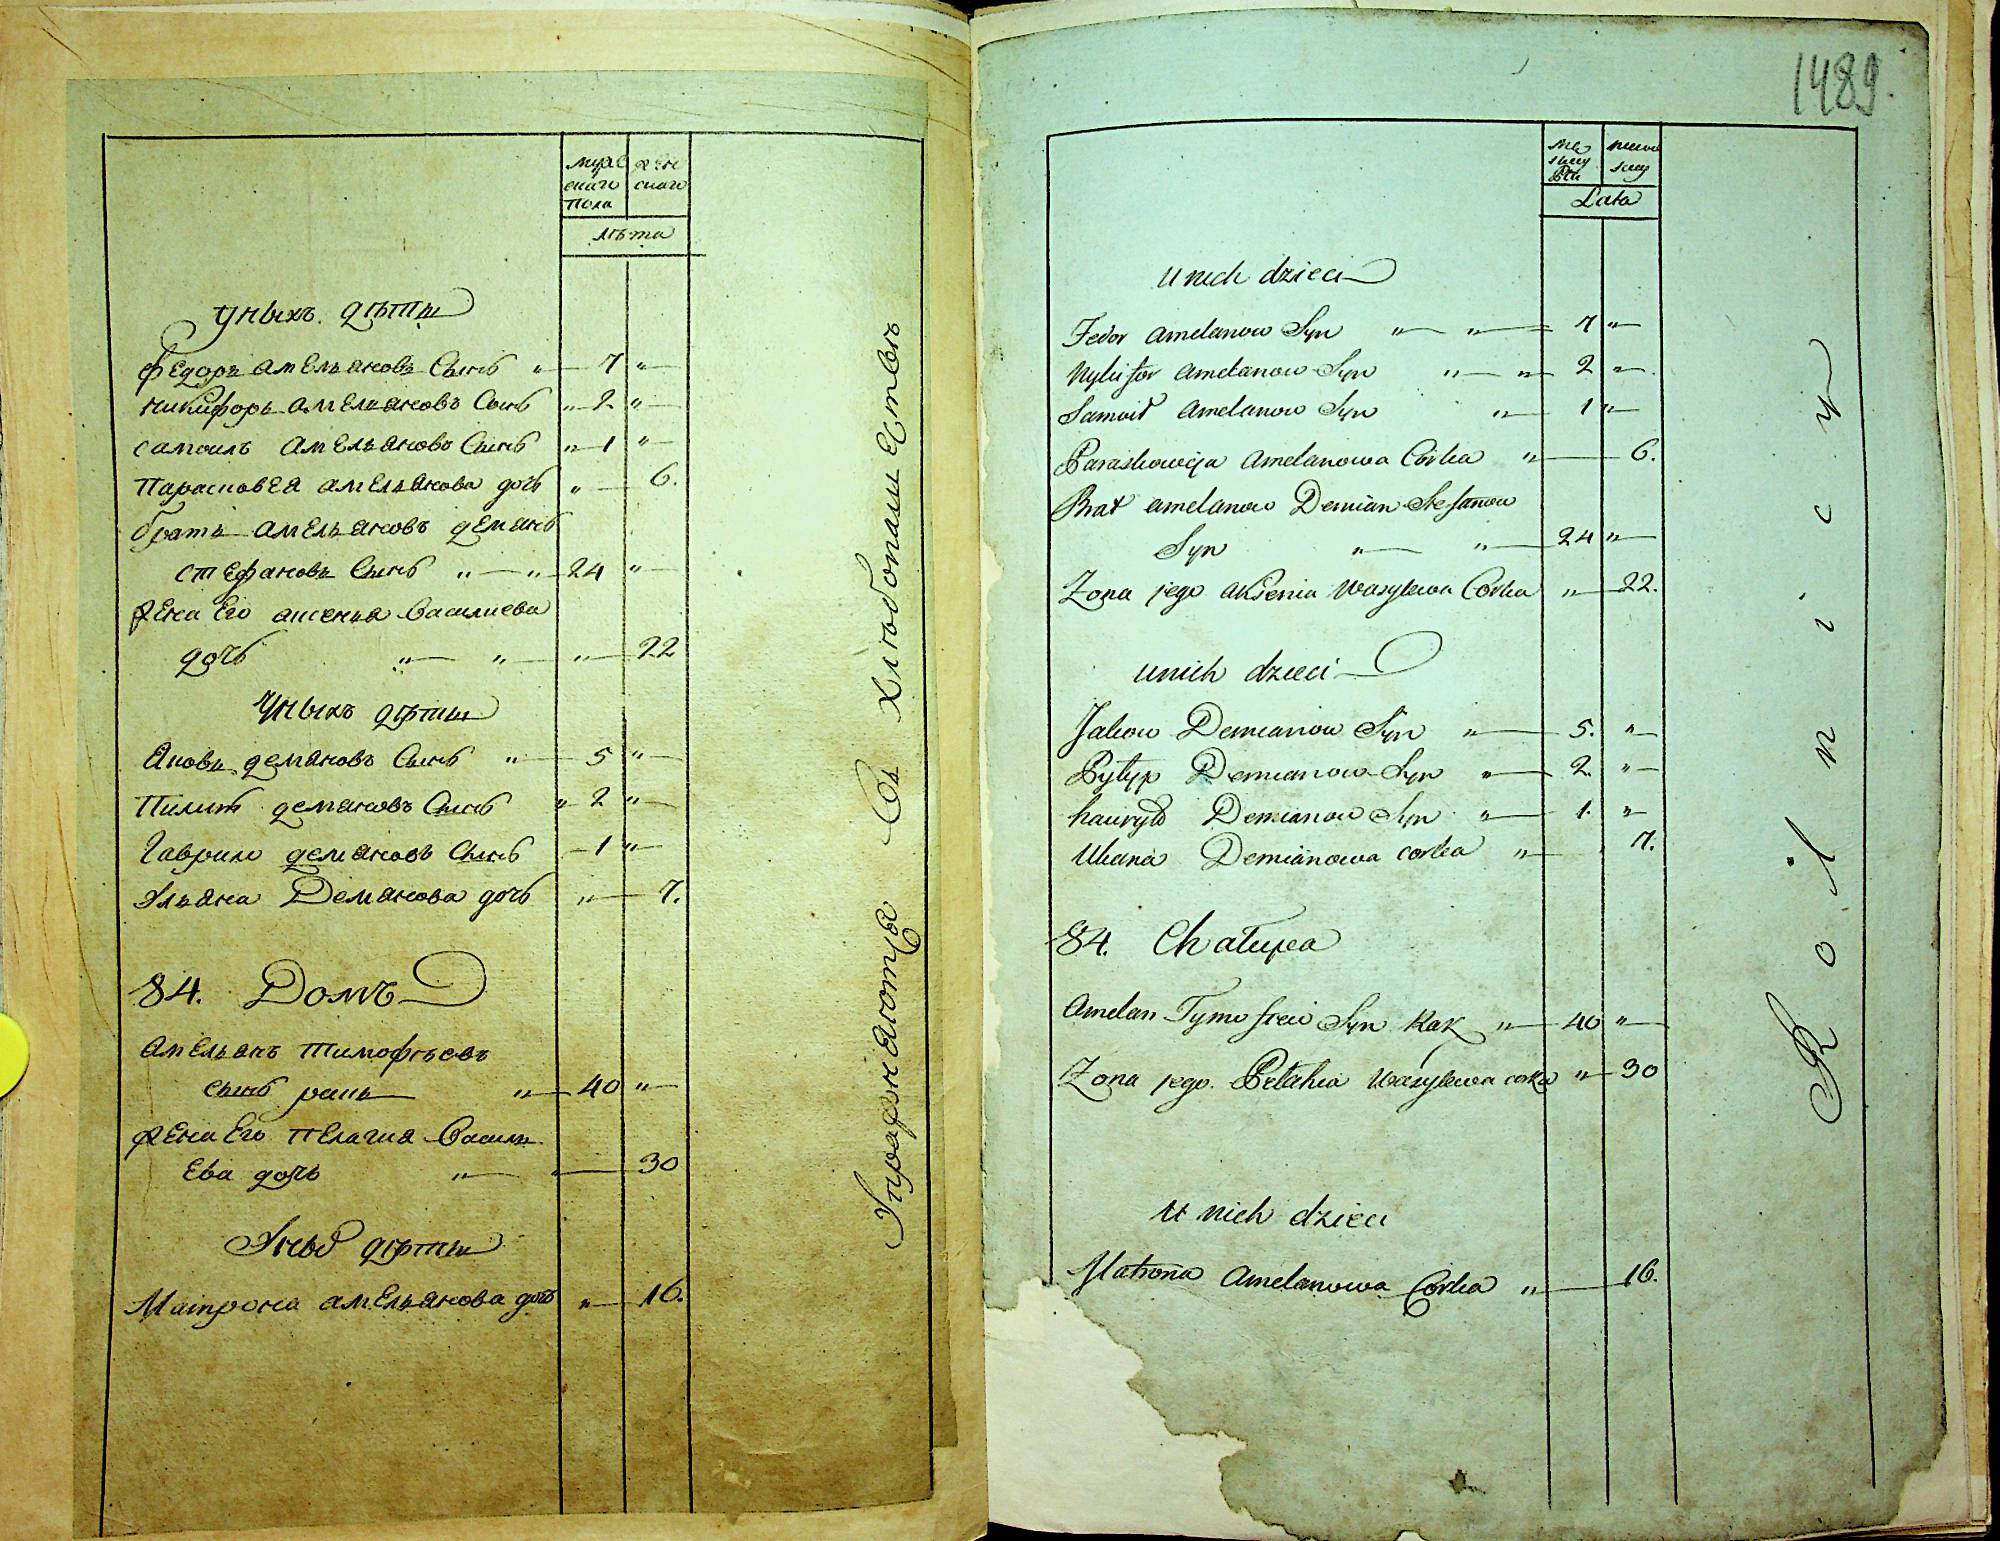 мужс
скаго
пола
жен
скаго
лѣта
уныхъ дѣты
Федоръ Амельяновъ Сынъ „ 7 „
никифоръ Амельяновъ Сынъ „ 2 „
самоилъ Амельяновъ Сынъ „ 1 „
Парасковея Амельянова дочь „ 6.
братъ Амельяновъ демянъ
стефановъ Сынъ „ „ 24 „
жена Его аксенья Василиева
дочь „ „ „ 22
Уныхъ дѣты
Яковъ демяновъ Сынъ „ 5 „
Пилип демяновъ Сынъ „ 2 „
Гаврило демяновъ Сынъ 1 „
Ульяна Демянова дочь „ 7.
84. Домъ
Амельянъ Тимофѣевъ
сынъ ракъ „ 40 „
жена Его Пелагия Василь
Ева дочь „ 30
Уных дѣты
Матрона амельянова дочь „ 16.
Упражняютца Въ хлѣбопашествѣ
1489.
Lata
U nich dzieci
Fedor Amelanow Syn „ „ 7 „
Nykifor Amelanow Syn „ „ 2 „
Samoił Amelanow Syn „ 1 „
Paraskowija Amelanowa Córka „ 6.
Brat Amelanow Demian Stefanow
Syn „ „ 24 „
Zona jego Aksenia Wasylewa Corka „ 22.
U nich dzieci
Jakow Demianow Syn „ 5. „
Pylyp Demianow Syn „ 2. „
hawryło Demianow Syn „ 1. „
Uliana Demianowa corka „ 7.
84. Chałupa
Amelan Tymofiew Syn Rak „ 40 „
Zona jego Pelahia Wasylewa corka „ 30
U nich dzieci
Matrona Amelanowa Corka „ 16.
Rolnicy